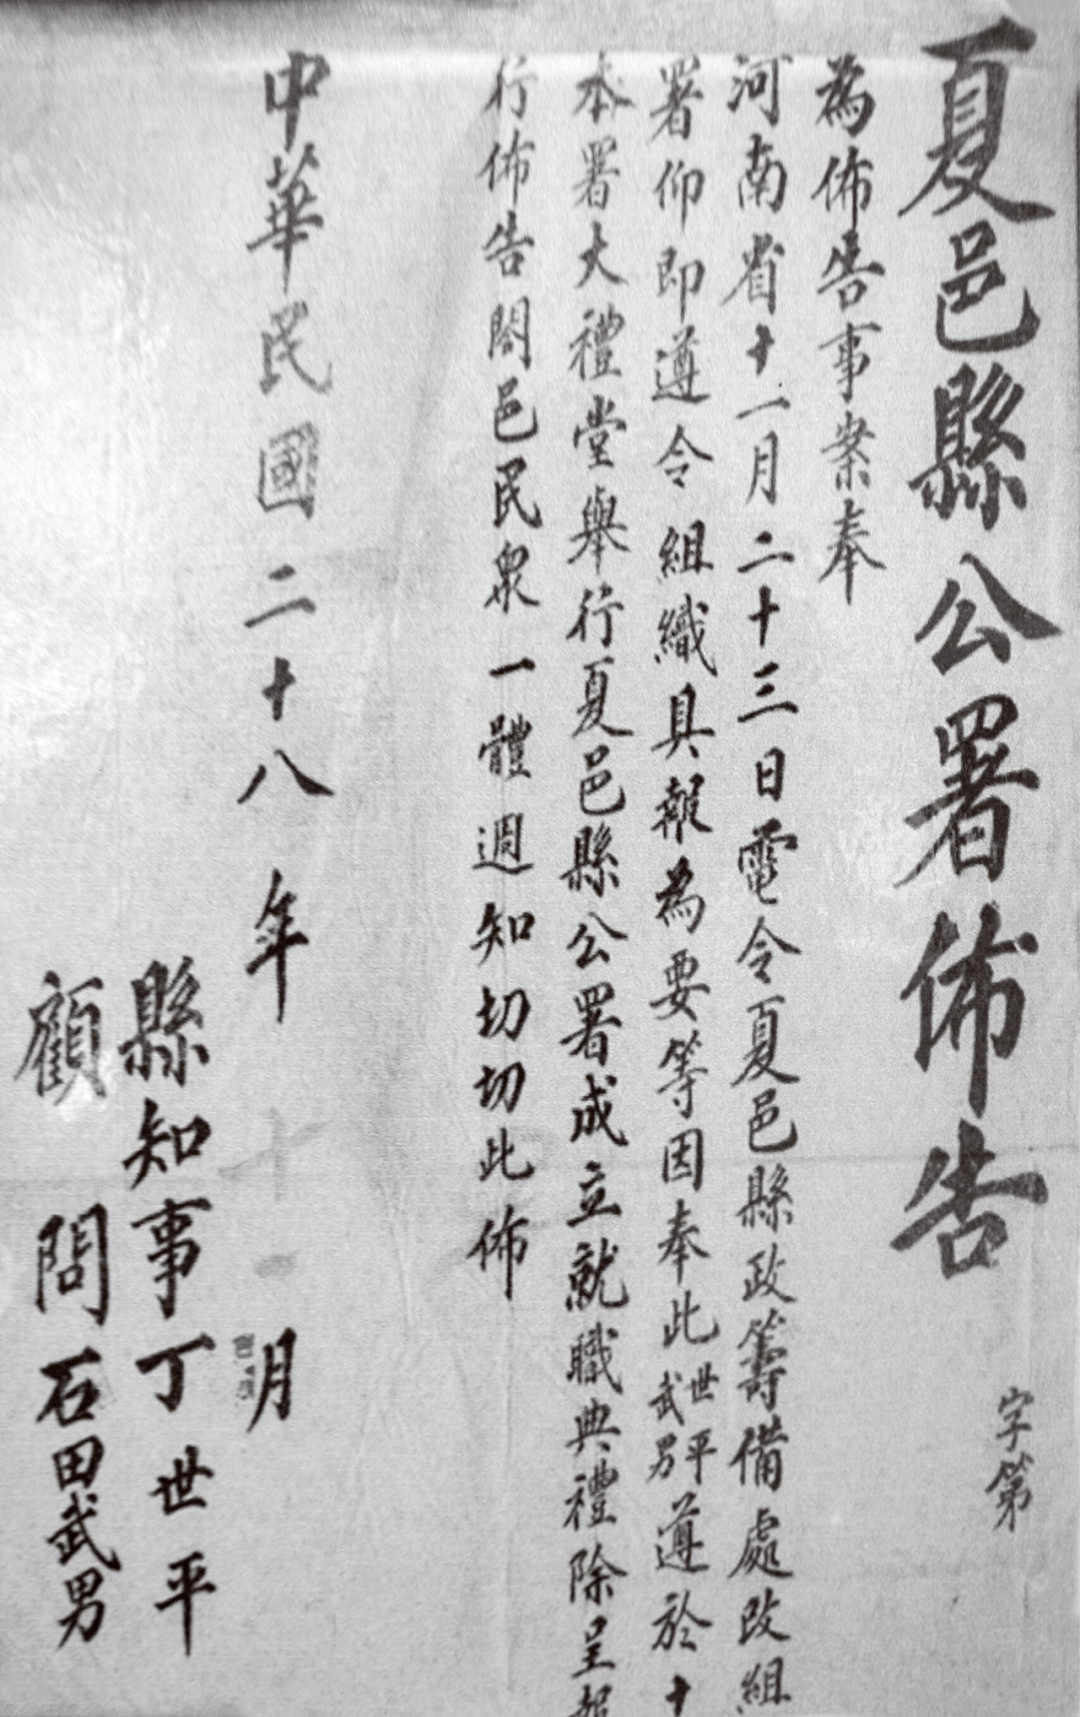 夏邑縣公署佈告
字第
為佈告事案奉
河南省十一月二十三日電令夏邑縣政籌備處改組
署仰即遵令組織具報為要等因奉此世平武男遵於十
本署大禮堂舉行夏邑縣公署成立就職典禮除呈報
行佈告閤邑民衆一體週知切切此佈
中華民國二十八年十 月
縣知事丁世平
顧問石田武男